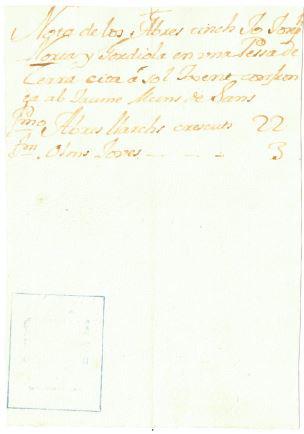 Nota de los Abres cinch Jo Joseph
Noria y Jordiola en una Pessa de
Terra cita à Sol Ixent, confron
ta ab Jaume Mens de Sans
Pmo Abres llarchs crescuts 22
Itm. Olms Joves 3